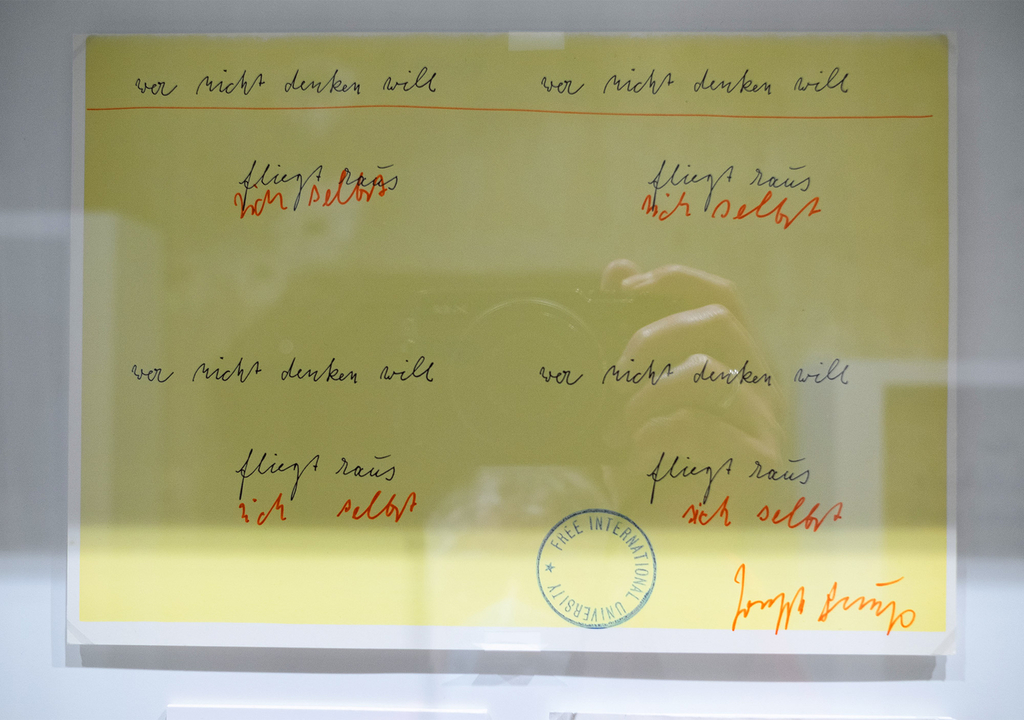 wer nicht denken will wer nicht denken will
fliegt raus fliegt raus
sich selbst sich selbst
wer nicht denken will wer nicht denken will
fliegt raus fliegt raus
sich selbst sich selbst
FREE INTERNATIONAL UNIVERSITY
Joseph Beuys